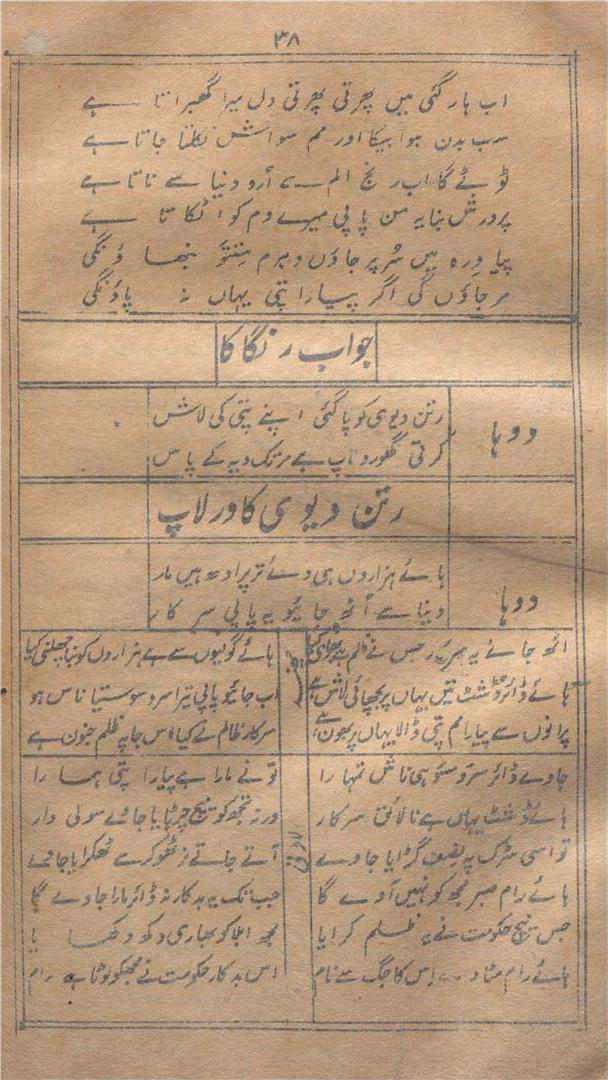 ۳۸
اب ہار گئی میں پھرتی پھرتی دل میرا گھبراتا ہے
سب بدن ہوا بیکا اور مم سواش نکلتا جاتا ہے
ٹوٹے گا اب رنج الم سے اُرو دنیا سے ناتا ہے
پرورش بنا یہ من پاپی میرے دم کو اٹکاتا ہے
پیا ورہ میں سُر پر جاؤں دہرم نبھا دُنگی
مر جاؤں گی اگر پیارا پتی یہاں نہ پاؤنگی
جواب رنگا کا
دوہا
رتن دیوی کو پا گئی اپنے پتی کی لاش
کرتی گھور ولاپ ہے مرتک دیہ کے پاس
رتن دیوی کا ورلاپ
دوہا
ہائے ہزاروں ہی دئے تر پرادھ ہیں مار
دنیا سے اُٹھ جائیو یہ پاپی سرکار
اٹھ جائے یہ سرکار جس نے ظلم کیا
ہائے گولیوں سے ہے ہزاروں کو بنا چھلنی کیا
ہائے ڈائر دُشٹ نیں یہاں پر بچھائی لاش ہے
اب جائیو پاپی تیرا سروسو ستیاناس ہو
پرانوں سے پیارا مم پتی ڈالا یہاں پر بھون ہے
سرکار ظالم نے کیا اس جا پہ ظلم جنون ہے
لاونی
جاوے ڈائر سروسو ہی ناش تمہارا
تو نے مارا ہے پیارا پتی ہمارا
ہائے دُشٹ یہاں ہے نالائق سرکار
ورنہ تجھ کو نیچ چڑہایا جائے سولی دار
تو اسی سڑک پہ نصف گڑایا جاوے
آتے جاتے نر ٹھوکر سے ٹھکرایا جائے
ہائے رام صبر مجھ کو نہیں آوے گا
جب تک یہ بدکار نہ ڈائر مارا جاوے گا
جس نیچ حکومت نے یہ ظلم کرایا
مجھ ابلا کو بھاری دکھ دکھایا
ہائے رام مٹا دے اِس کا جگ سے نام
اس بدکار حکومت نے مجھکو لوٹا ہے رام